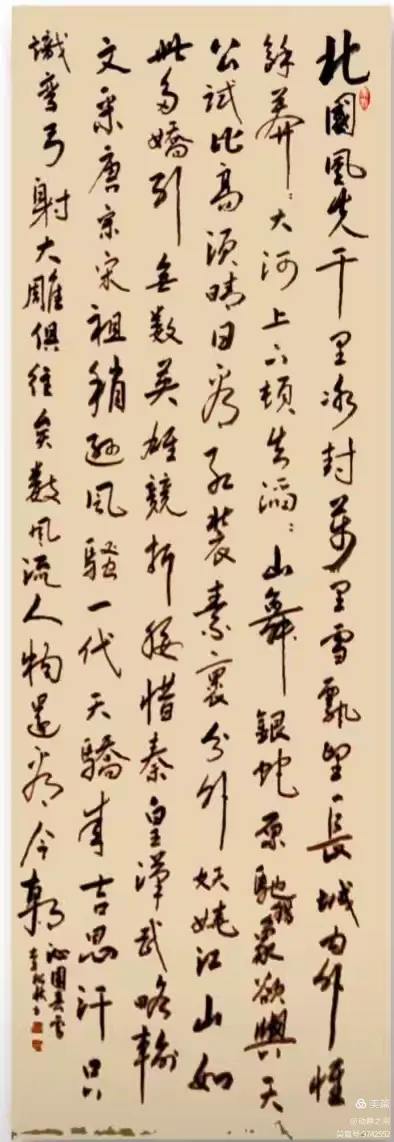 北國風光千里冰封萬里雪飄望長城内外惟
餘莽〻大河上下頓失滔〻山舞銀蛇原馳蠟象欲與天
公試比高須晴日看紅裝素裹分外妖嬈江山如
此多嬌引無數英雄競折腰惜秦皇漢武略輸
文采唐宗宋祖稍遜風騷一代天驕成吉思汗只
識彎弓射大雕俱往矣數風流人物還看今朝
沁園春雪
美篇